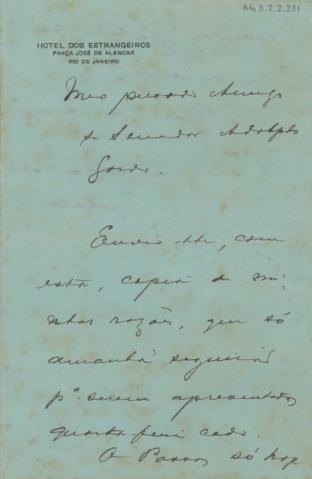 AG 3.2.2.231
HOTEL DOS ESTRANGEIROS
PRAÇA JOSÉ DE ALENCAR
RIO DE JANEIRO
Meu presado Amigo
Sr Senador Adolpho
Gordo.
Envio-lhe, com
esta, copia de mi-
nhas razões, que só
amanhã seguirão
pª. serem apresentadas
quarta feira cedo.
O Passos só hoje